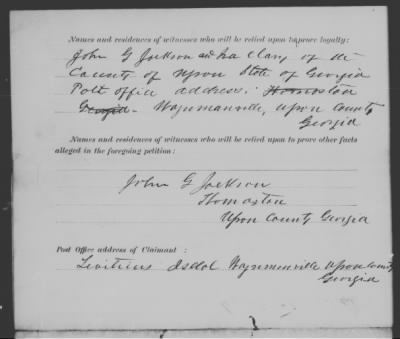 Names and residences of witnesses who will be relied upon to prove loyalty:
John G Jackson and Ira Clary of the
County of Upson State of Georgia
Post office address: Thomaston
Georgia. Waynmanville, Upson County
Georgia
Names and residences of witnesses who will be relied upon to prove other facts
alleged in the foregoing petition:
John G Jackson
Thomaston
Upson County Georgia
Post Office address of Claimant :
Waynmanville Upson County
Georgia